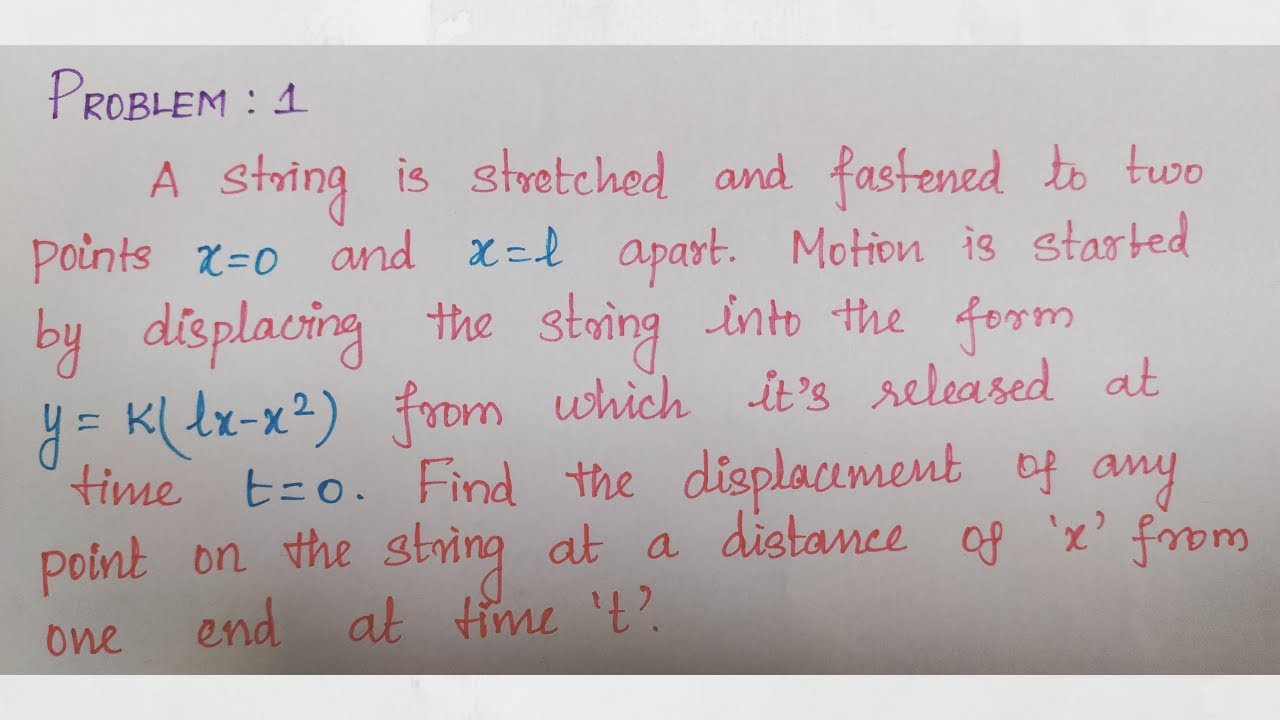 PROBLEM : 1
A string is stretched and fastened to two
points x=0 and x=l apart. Motion is started
by displacing the string into the form
y = K(lx-x²) from which it's released at
time t=0. Find the displacement of any
point on the string at a distance of 'x' from
one end at time 't'.